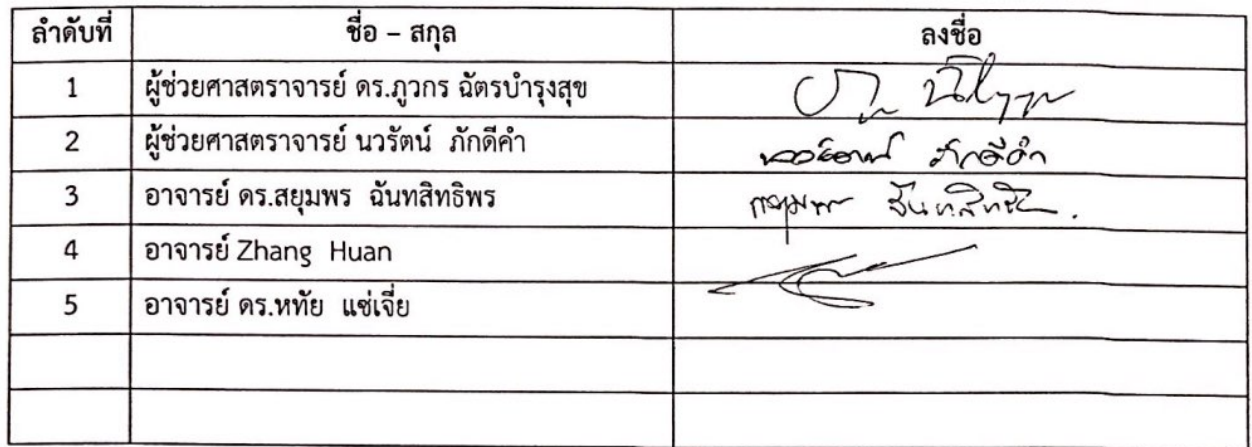 ลำดับที่ ชื่อ – สกุล ลงชื่อ
1 ผู้ช่วยศาสตราจารย์ ดร.ภูวกร ฉัตรบำรุงสุข
2 ผู้ช่วยศาสตราจารย์ นวรัตน์ ภักดีคำ นวรัตน์ ภักดีคำ
3 อาจารย์ ดร.สยุมพร ฉันทสิทธิพร
4 อาจารย์ Zhang Huan
5 อาจารย์ ดร.หทัย แซ่เจี่ย